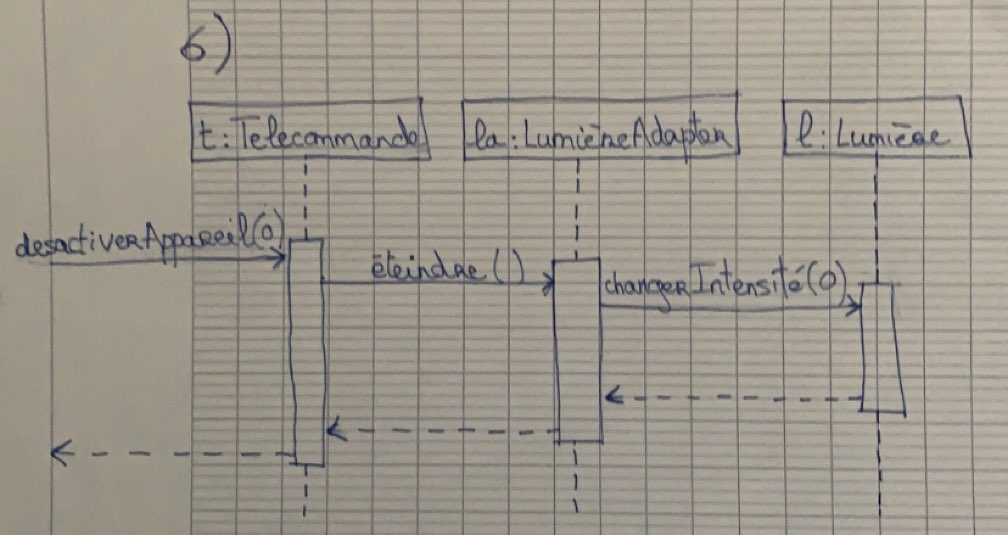 6)
t:Telecommande
la:LumièreAdapter
l:Lumière
desactiverAppareil(0)
éteindre()
changerIntensité(0)